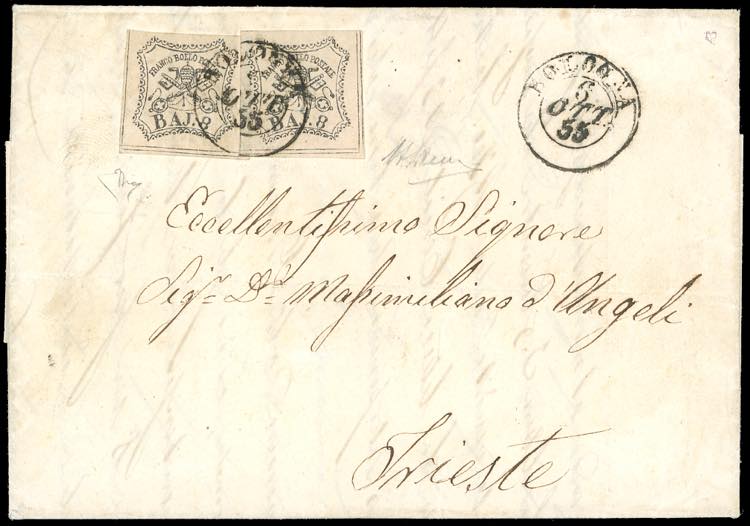 FRANCO BOLLO POSTALE
BAJ. 8
BAJ. 8
BOLOGNA
OTT.
55
BOLOGNA
5
OTT.
55
Eccellentissimo Signore
Sigr. Dr. Massimiliano d'Angeli
Trieste